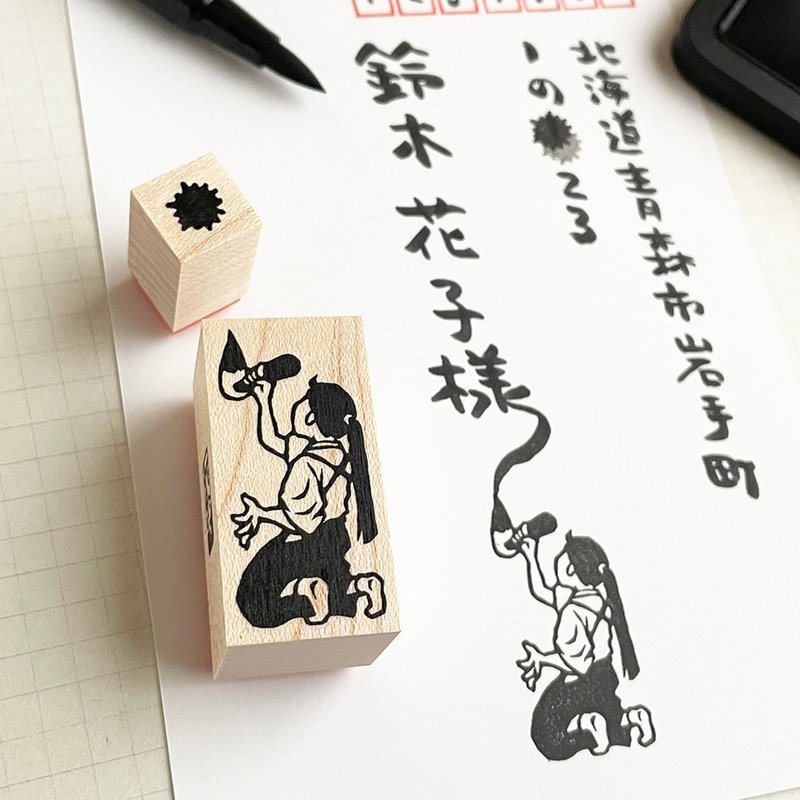 北海道青森市岩手町
1の 23
鈴木 花子様